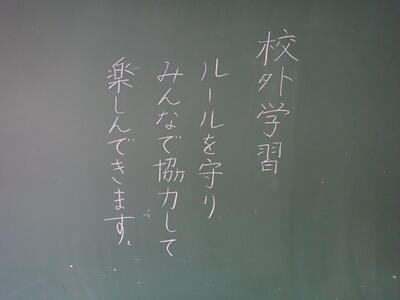 校外学習
ルールを守り
みんなで協力して
楽しんできます。